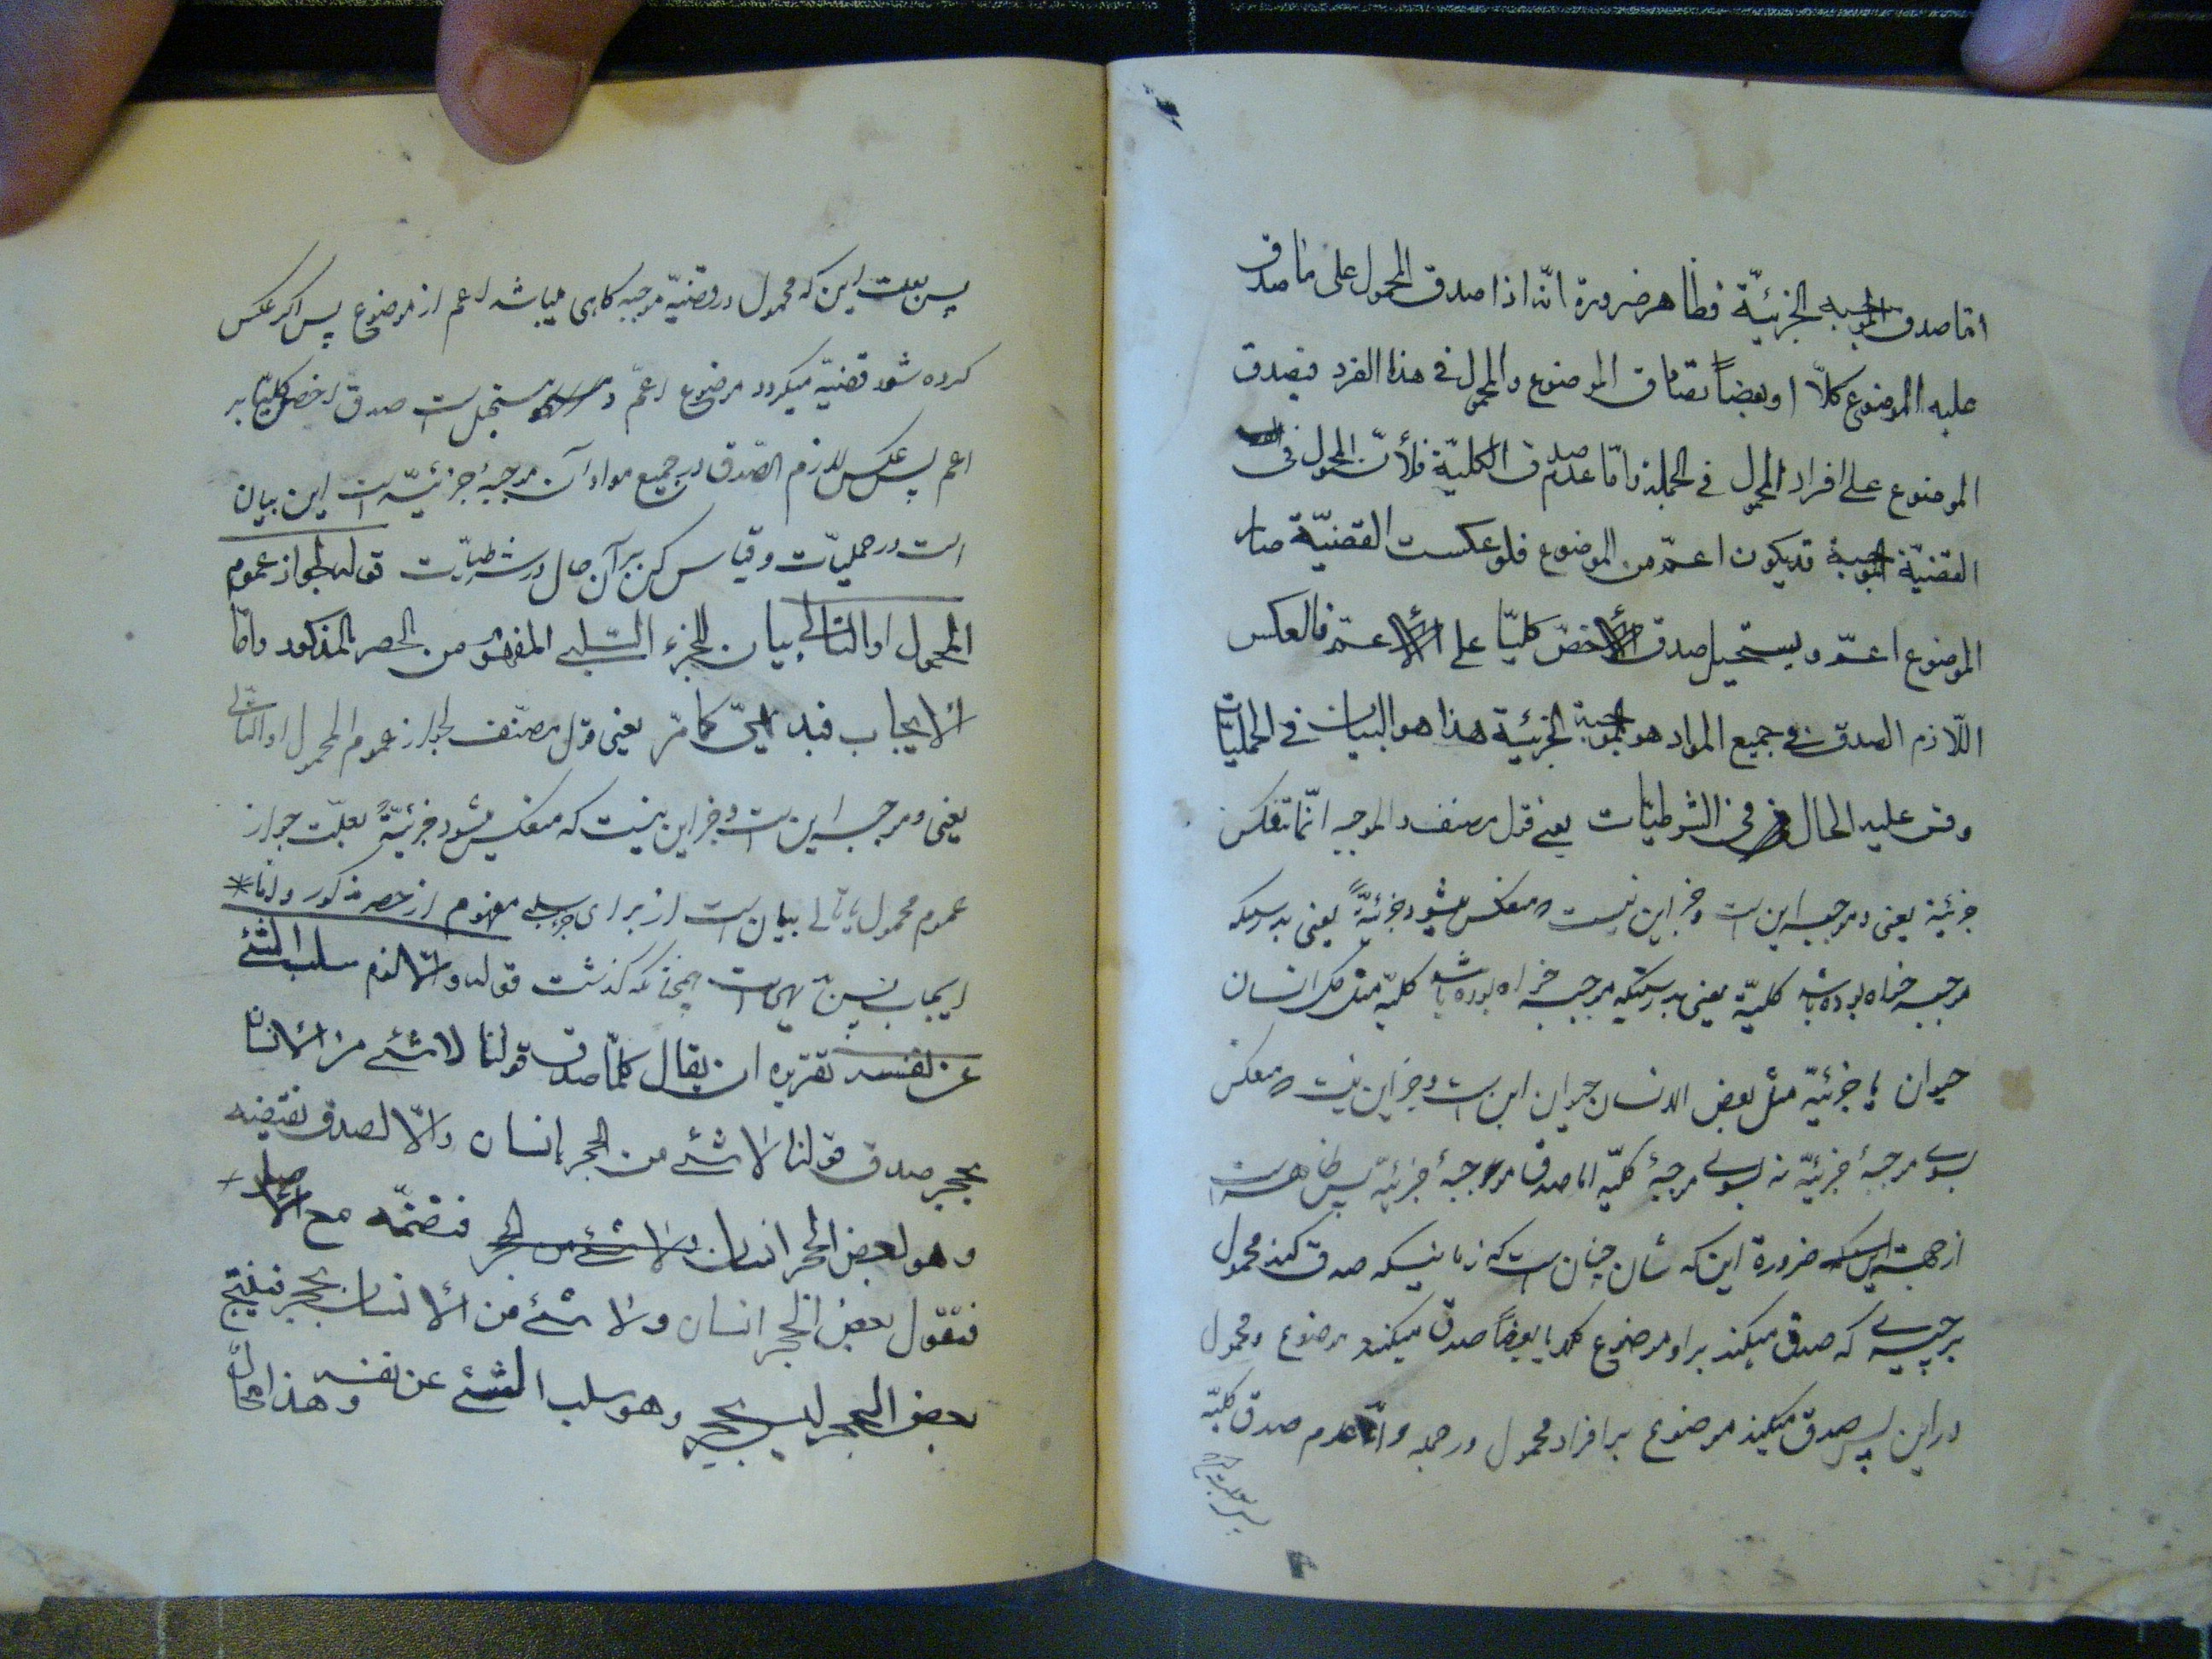 اما صدق الموجبه الجزئیّة فظاهر ضرورة انّه اذا صدق المحمول علی ما صدق
علیه الموضوع کلّا او بعضاً تصادق الموضوع والمحمول فی هذا الفرد فیصدق
الموضوع علی افراد المحمول فی الجملة وامّا عدم صدق الکلیّة فلأنّ المحمول فی
القضیّة الموجبة قد یکون اعمّ من الموضوع فلو عکست القضیّة صار
الموضوع اعمّ ویستحیل صدق الأخصّ کلیّا علی الأعمّ فالعکس
اللّازم الصدق فی جمیع المواد هو الموجبة الجزئیّة هذا هو البیان فی الحملیّات
وقس علیه الحال فی الشرطیّات یعنی قول مصنف والموجبه انّما تنعکس
جزئیّة یعنی و موجبه این است و جز این نیست که منعکس میشود جزئیّةً یعنی بدرستیکه
موجبه خواه بوده باشد کلیّة یعنی بدرستیکه موجبه خواه بوده باشد کلیّة مثل کل انسان
حیوان یا جزئیّة مثل بعض الانسان حیوان این است و جز این نیست که منعکس
بسوی موجبهٔ جزئیّه نه بسوی موجبهٔ کلیّه اما صدق موجبهٔ جزئیّه پس ظاهر است
از جهة ضرورة این که شان چنان است که زمانیکه صدق کند محمول
بر چیزی که صدق میکند بر او موضوع کلا یا بعضاً صدق میکند موضوع و محمول
در این پس صدق میکند موضوع بر افراد محمول در جمله و امّا عدم صدق کلیّه
پس بعلت این که محمول در قضیّه موجبه گاهی میباشد اعم از موضوع پس اگر عکس
کرده شود قضیّه میگردد موضوع اعمّ و مستحیل است صدق اخص کلیّا بر
اعم پس عکس لازم الصّدق در جمیع مواد آن موجبهٔ جزئیّه است این بیان
است در حملیّات و قیاس کن بر آن حال در شرطیّات قوله لجواز عموم
المحمول او التالی بیان للجزء السّلبی المفهوم من الحصر المذکور وامّا
الایجاب فبدیهیّ کما مرّ یعنی قول مصنّف لجواز عموم المحمول او التالی
یعنی و موجب این است و جز این نیست که منعکس میشود جزئیّةً بعلّت جواز
عموم محمول یا تالی بیان است از برای جزء سلبی مفهوم از حصر مذکور و امّا
ایجاب پس بدیهی است چنانکه گذشت قوله والّا لزم سلب الشئ
عن نفسه تقریره ان یقال کلّما صدق قولنا لا شئ من الانسان
بحجر صدق قولنا لا شئ من الحجر بإنسان والّا لصدق نقیضه
وهو بعض الحجر انسان ولا شئ من الحجر فنضمّه مع الاصل
فنقول بعض الحجر انسان ولا شئ من الانسان بحجر فینتج
بعض الحجر لیس بحجر وهو سلب الشئ عن نفسه وهذا محال